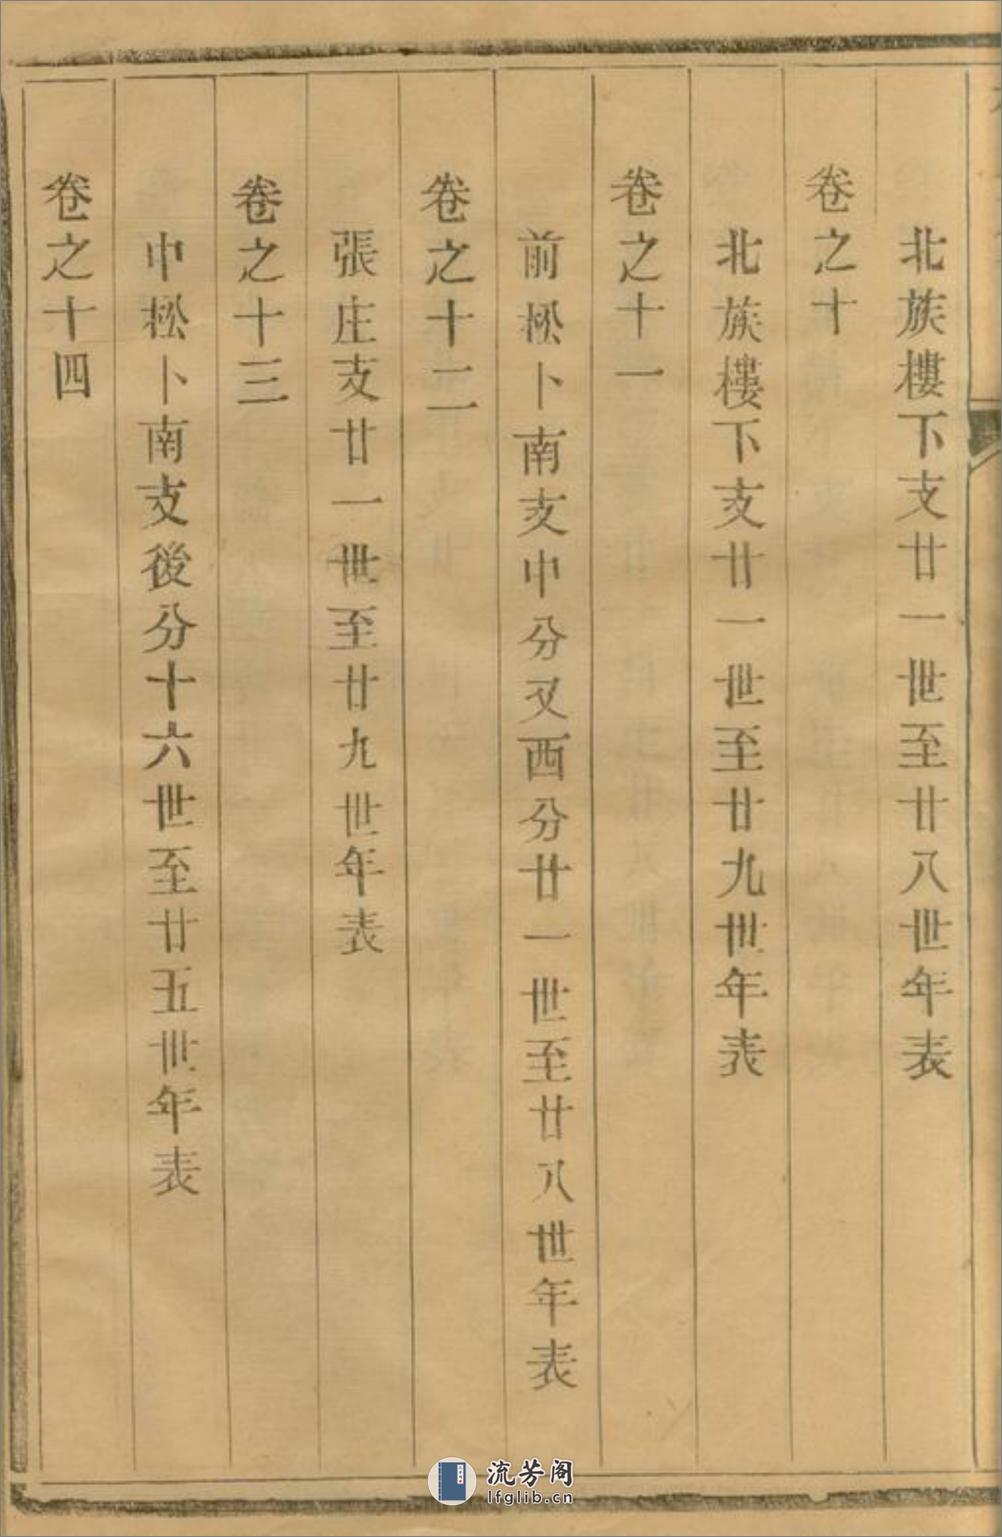 北族樓下支廿一世至廿八世年表
卷之十
北族樓下支廿一世至廿九世年表
卷之十一
前松卜南支中分又西分廿一世至廿八世年表
卷之十二
張庄支廿一世至廿九世年表
卷之十三
中松卜南支後分十六世至廿五世年表
卷之十四
流芳阁
lfglib.cn